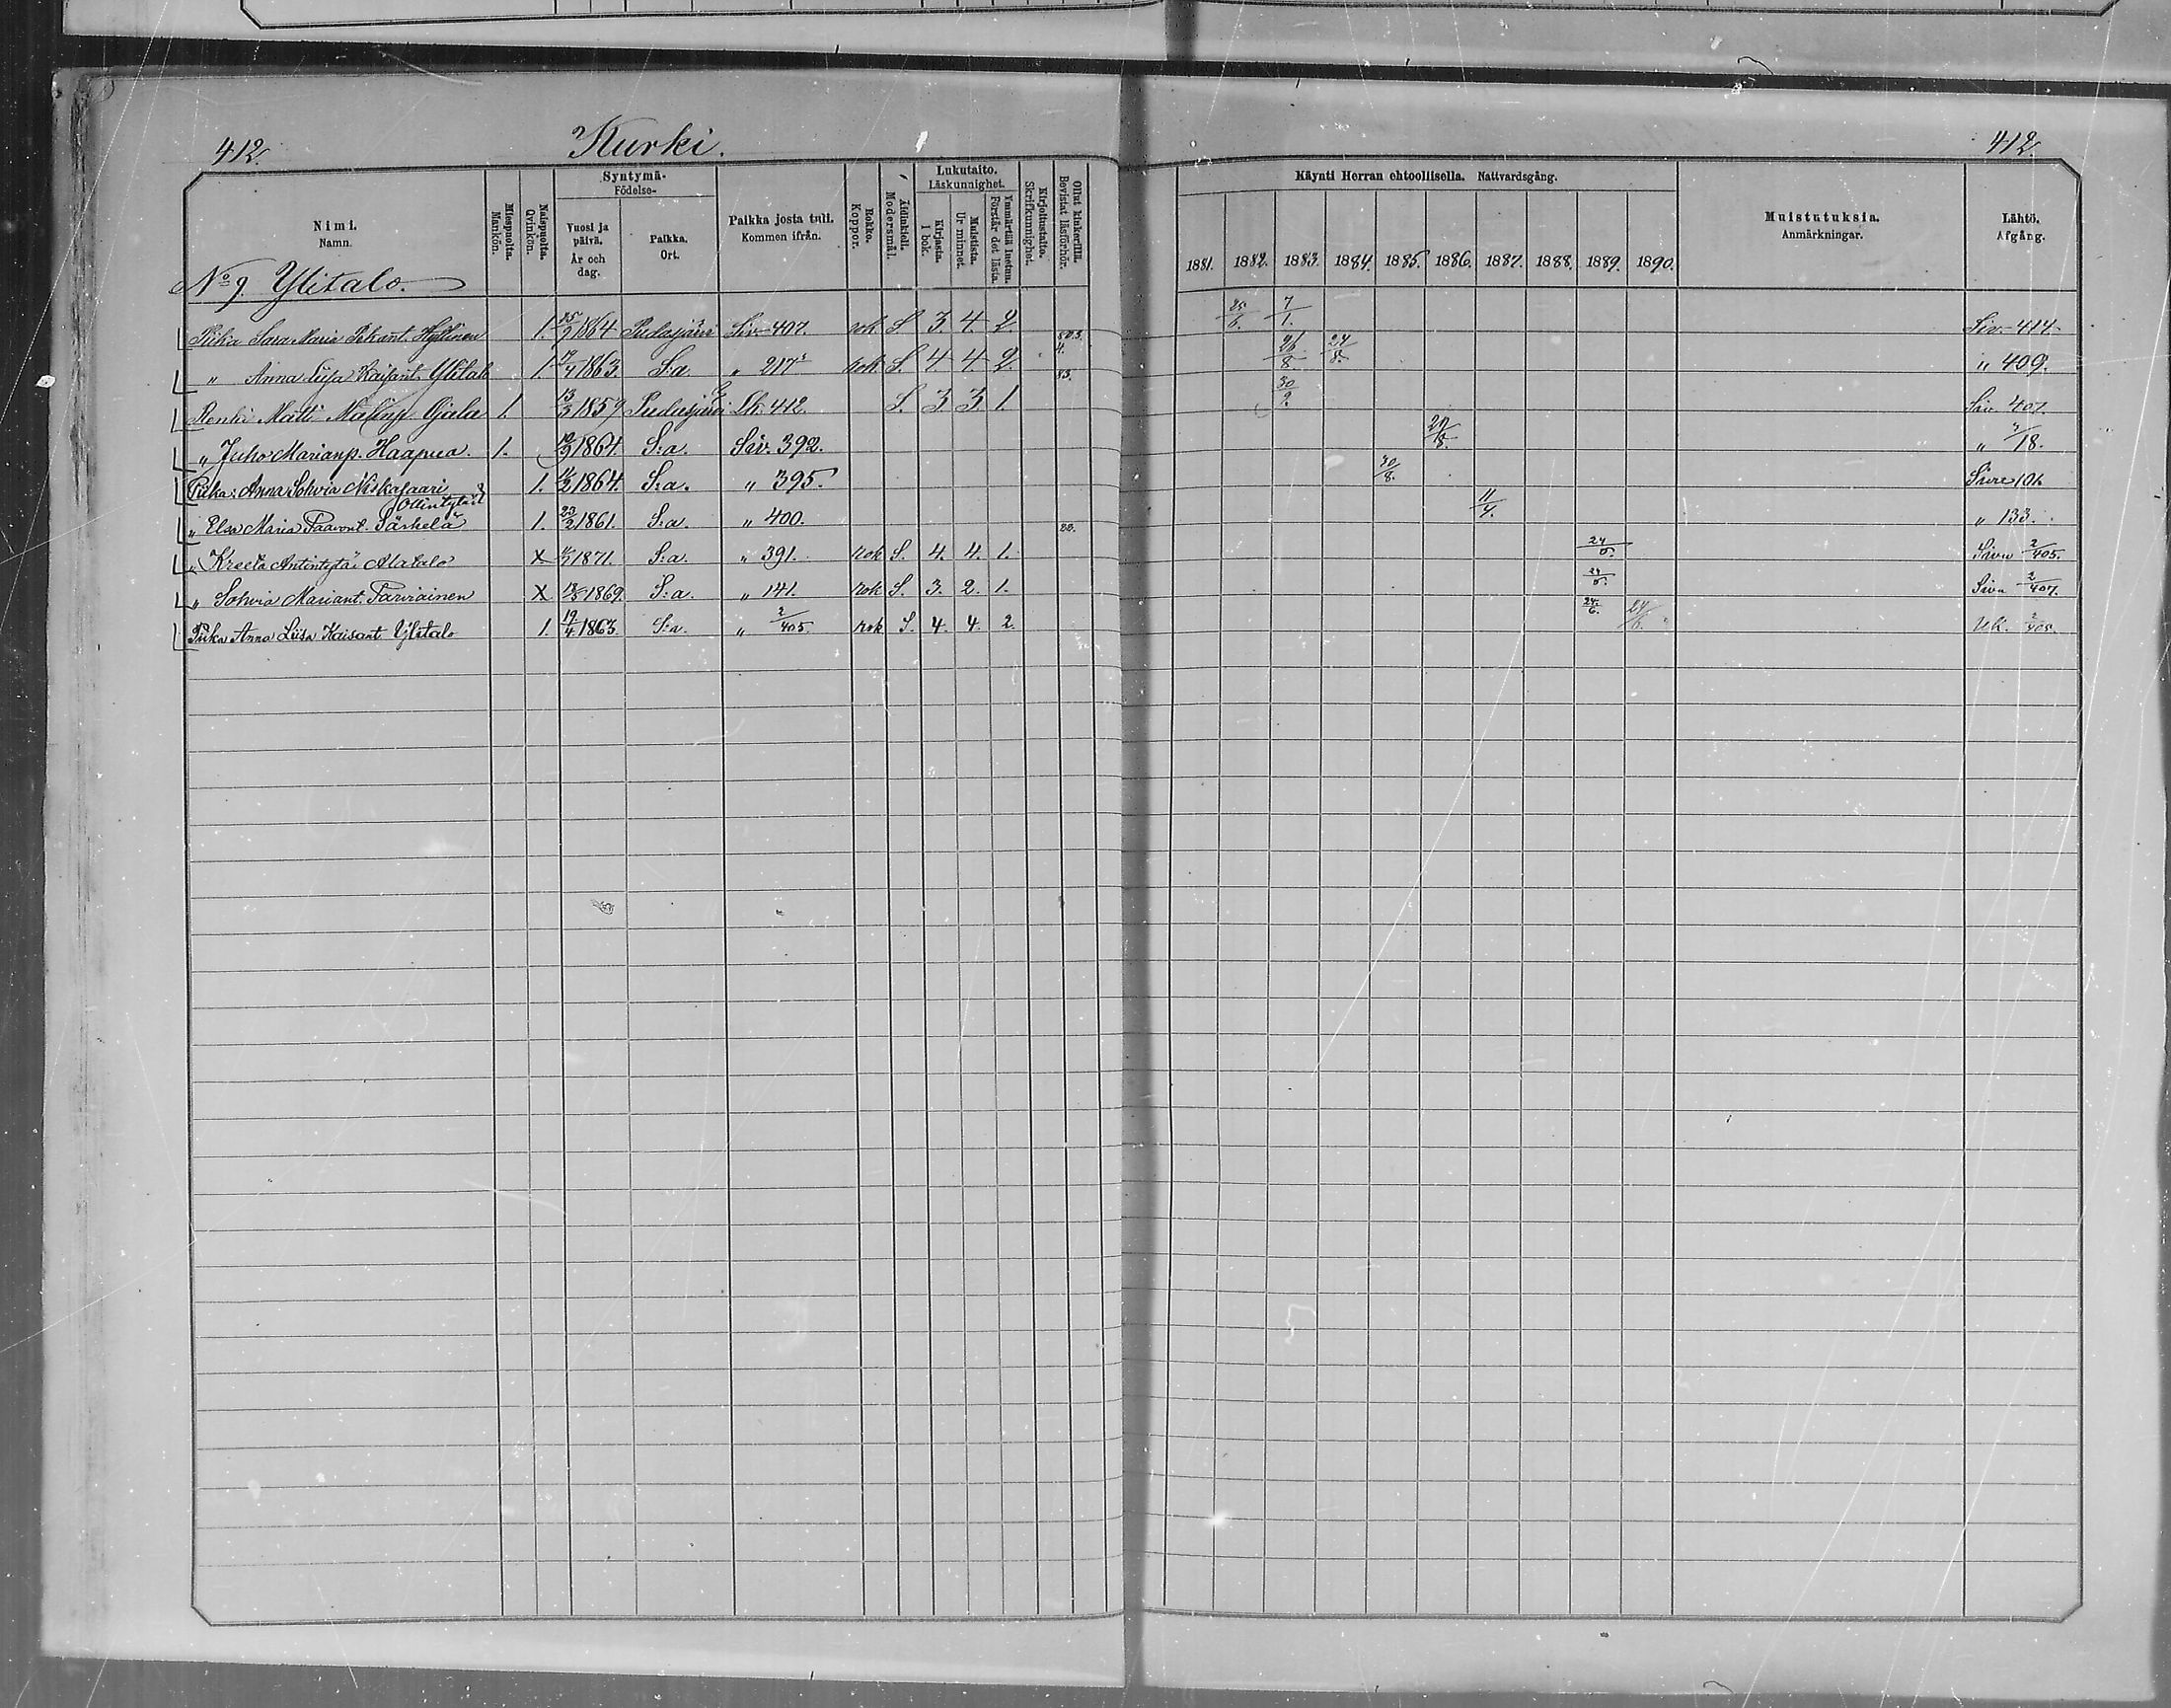 412.
Kurki.
412.
Nimi.
Namn.
Miespuolia.
Mankön.
Naispuolia.
Qvinkön.
Syntymä-
Födelse-
Vuosi ja päivä.
År och dag.
Paikka.
Ort.
Paikka josta tuli.
Kommen ifrån.
Rokko.
Koppor.
Äidinkieli.
Modersmål.
Lukutaito.
Läskunnighet.
Kirjasta.
I bok.
Muistista.
Ur minnet.
Ymmärtää luetun.
Förstår det lästa.
Kirjoitustaito.
Skrifkunnighet.
Ollut kinkerillä.
Bevistat läsförhör.
Käynti Herran ehtoollisella. Nattvardsgång.
1881. 1882. 1883. 1884. 1885. 1886. 1887. 1888. 1889. 1890.
Muistutuksia.
Anmärkningar.
Lähtö.
Afgång.
No 9. Ylitalo.
Piika Sara Maria Hyttinen 1. 1864 Pudasjärvi Siv. 407. rok S. 3. 4. 2. 25/6. 7/1. Siv. 414.
" Anna Liisa Kaisant. Ylital 1. 1863. S:a. " 217 rok S. 4 4 2. 26/8. 24/8. " 409.
Renki Matti Ojala 1. 13/3 1859 Pudasjärvi Lk. 412. S. 3 3 1. 30/9. Siv. 407.
" Juho Marianp. Haapua. 1. 1864. S:a. Siv. 392. " 18.
Piika: Anna Sohvia Niskasaari 1. 1864. S:a. " 395. 30/8. Sivu 101.
Ollintytär
" Elsa Maria Paavont. Särkelä 1. 23/2 1861. S:a. " 400. 11/4. " 133.
" Kreeta Antintytär Alatalo X 1871. S:a. " 391. rok S. 4. 4. 1. Sivu 2/405.
" Sohvia Mariant. Parviainen X 1869. S:a. " 141. rok S. 3. 2. 1. Sivu 2/407.
Piika Anna Liisa Kaisant Ylitalo 1. 19/4 1863. S:a. " 2/405. rok S. 4. 4. 2. 24/6. 24/6. Uk. 2/405.